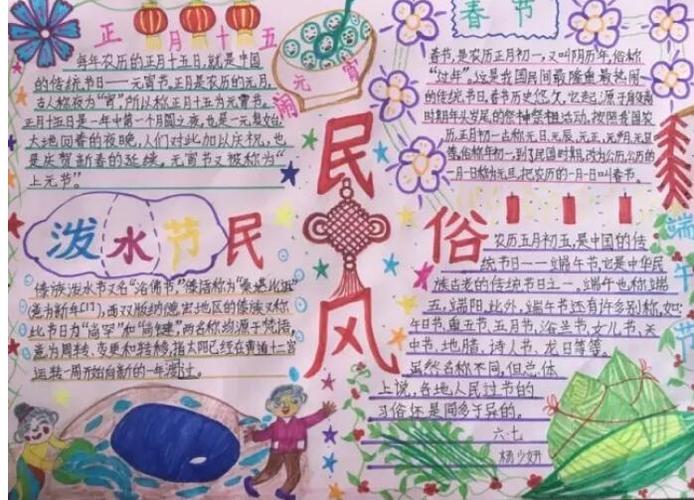 正月十五
每年农历的正月十五日,就是中国
的传统节日——元宵节。正月是农历的元月,
古人称夜为“宵”,所以称正月十五为元宵节。
正月十五日是一年中第一个月圆之夜,也是一元复始,
大地回春的夜晚,人们对此加以庆祝,也
是庆贺新春的延续。元宵节又被称为“
上元节”。
闹元宵
春节
春节,是农历正月初一,又叫阴历年,俗称
“过年”。这是我国民间最隆重、最热闹
的传统节日。春节历史悠久,它起源于殷商
时期年头岁尾的祭神祭祖活动。按照我国农
历,正月初一古称元日、元辰、元正、元朔、元旦
等,俗称年初一,到了民国时期,改为公历,公历的
一月一日称为元旦,把农历的一月一日叫春节。
民
俗
民
风
泼水节
傣族泼水节又名“浴佛节”,傣语称为
意为新年
比节日为“尚罕”和“尚键”,两名称均源于梵语,
意为周转、变更和转移,指太阳已经在黄道十二宫
运转一周开始向新的一年过
端午节
农历五月初五,是中国的传
统节日——端午节,它是中华民
族古老的传统节日之一。端午也称端
五,端阳。此外,端午节还有许多别称,如:
午日节、重五节、五月节、浴兰节、女儿节、天
中节、地腊、诗人节、龙日等等。
虽然名称不同,但总体
上说,各地人民过节的
习俗还是同多于异的。
六.七
杨少妍